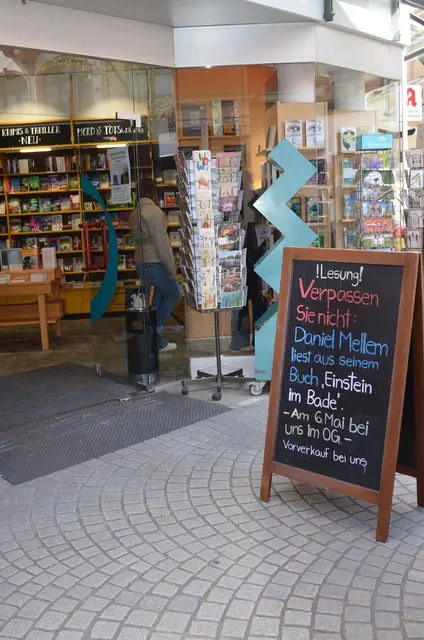 KRIMIS & THRILLER
-NEU-
MORD & TOTSCHLAG
!Lesung!
Verpassen
Sie nicht:
Daniel Mellem
liest aus seinem
Buch ,Einstein
im Bade'.
-Am 6. Mai bei
uns im OG.-
Vorverkauf bei uns